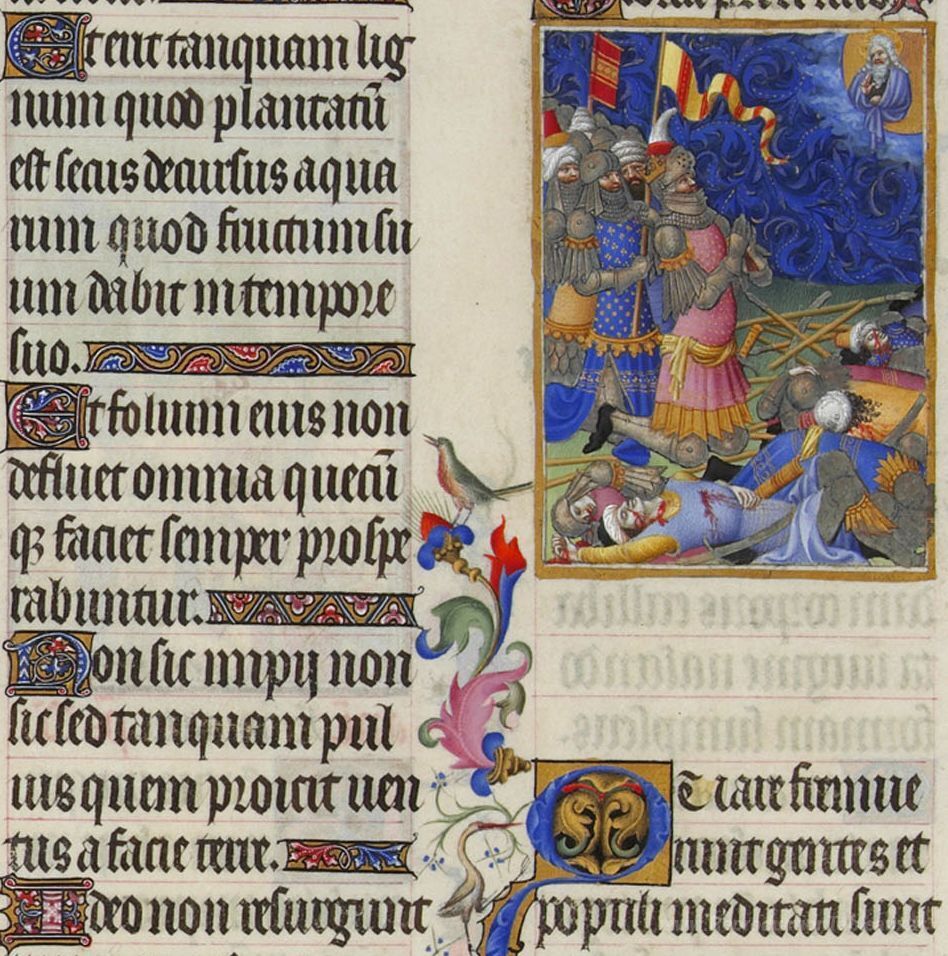 Et erit tanquam lig
num quod plantatū
est secus decursus aqua
rum quod fructum su
um dabit in tempore
suo.
Et folium eius non
defluet omnia quecū
qꝫ faciet semper prospe
rabuntur.
Non sic impij non
sic sed tanquam pul
uis quem proicit uen
tus a facie terre.
Ideo non resurgunt
Quare fremue
runt gentes et
populi meditati sunt